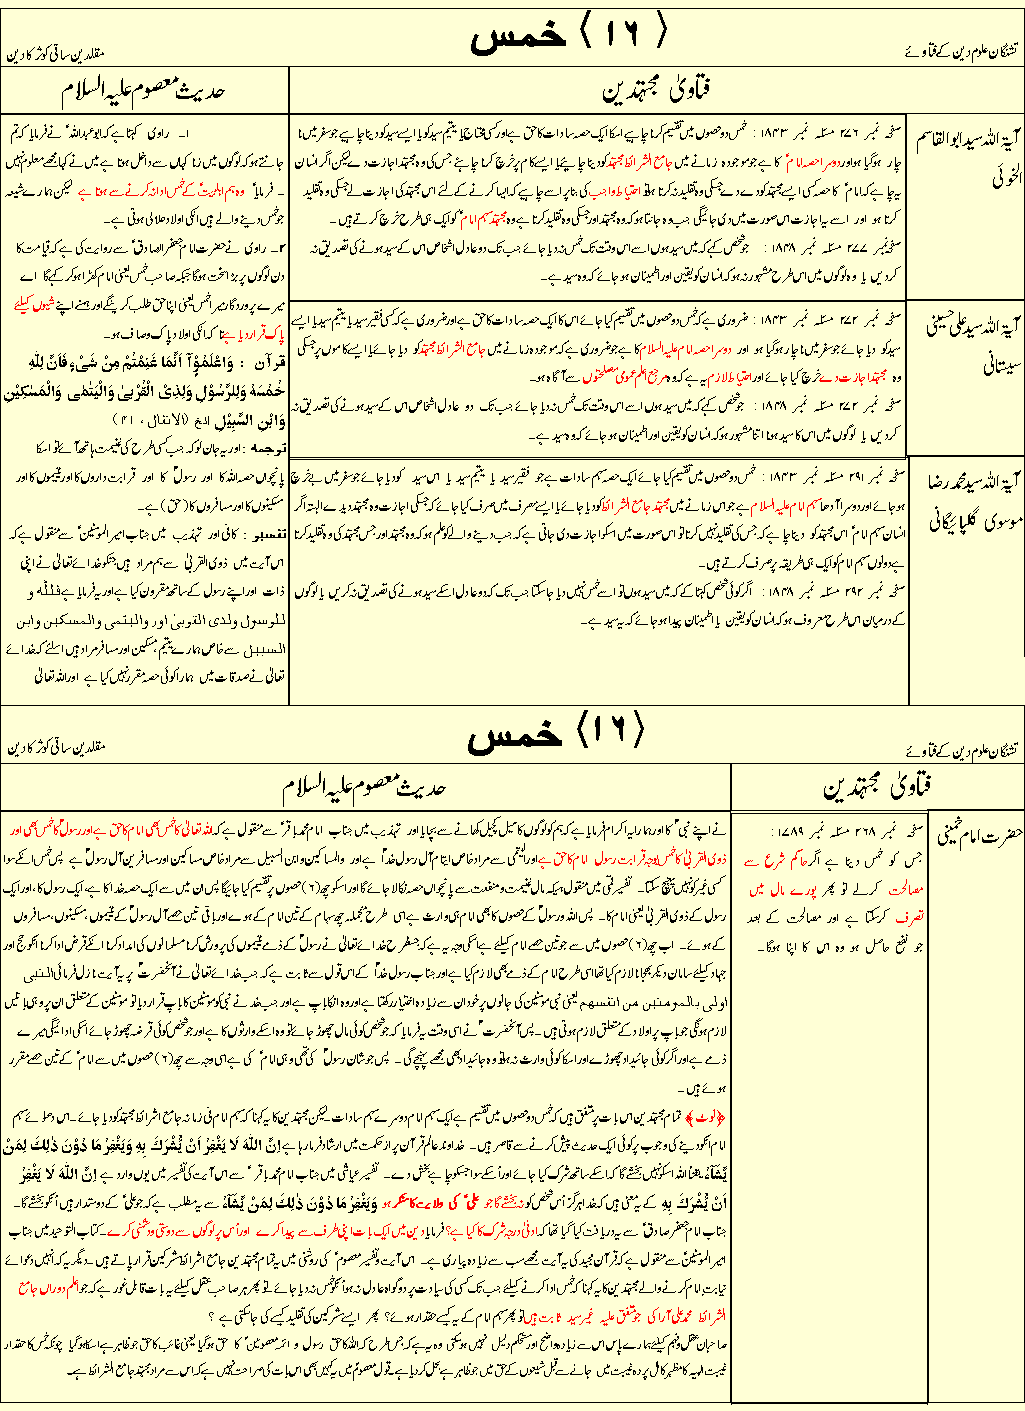 ﴿۱۶﴾ خمس
تشنگان علوم دین کے فتاوے
مقلدین ساقی کوثر کا دین
فتاویٰ مجتہدین
حدیث معصوم علیہ السلام
آیۃ اللہ سید ابوالقاسم
الخوئی
صفحہ نمبر ۲۷۶ مسئلہ نمبر ۱۸۴۳ : خمس دو حصوں میں تقسیم کرنا چاہیے اسکا ایک حصہ سادات کا حق ہے اور کسی محتاج یا یتیم سید کو یا ایسے سید کو دینا چاہیے جو سفر میں نا
چار ہو گیا ہو اور دوسرا حصہ امامؑ کا ہے جو موجودہ زمانے میں جامع الشرائط مجتہد کو دینا چاہیے یا ایسے کام پر خرچ کرنا چاہئے جس کی وہ مجتہد اجازت دے لیکن اگر انسان
یہ چاہے کہ امامؑ کا حصہ کسی ایسے مجتہد کو دے دے جسکی وہ تقلید نہ کرتا ہو تو احتیاط واجب کی بنا پر اسے چاہیے کہ ایسا کرنے کے لئے اس مجتہد کی اجازت لے جسکی وہ تقلید
کرتا ہو اور اسے یہ اجازت اس صورت میں دی جائیگی جب وہ جانتا ہو کہ وہ مجتہد اور جسکی وہ تقلید کرتا ہے وہ مجتہد سہم امامؑ کو ایک ہی طرح خرچ کرتے ہیں۔
صفحہ نمبر ۲۷۷ مسئلہ نمبر ۱۸۴۸ : جو شخص کہے کہ میں سید ہوں اسے اس وقت تک خمس نہ دیا جائے جب تک دو عادل اشخاص اس کے سید ہونے کی تصدیق نہ
کر دیں یا وہ لوگوں میں اس طرح مشہور نہ ہو کہ انسان کو یقین اور اطمینان ہو جائے کہ وہ سید ہے۔
آیۃ اللہ سید علی حسینی
سیستانی
صفحہ نمبر ۲۷۲ مسئلہ نمبر ۱۸۴۳ : ضروری ہے کہ خمس دو حصوں میں تقسیم کیا جائے اس کا ایک حصہ سادات کا حق ہے اور ضروری ہے کہ کسی فقیر سید یا یتیم سید یا ایسے
سید کو دیا جائے جو سفر میں نا چار ہو گیا ہو اور دوسرا حصہ امام علیہ السلام کا ہے جو ضروری ہے کہ موجودہ زمانے میں جامع الشرائط مجتہد کو دیا جائے یا ایسے کاموں پر جسکی
وہ مجتہد اجازت دے خرچ کیا جائے اور احتیاط لازم یہ ہے کہ وہ مرجع اعلم عمومی مصلحتوں سے آگاہ ہو۔
صفحہ نمبر ۲۷۲ مسئلہ نمبر ۱۸۴۸ : جو شخص کہے کہ میں سید ہوں اسے اس وقت تک خمس نہ دیا جائے جب تک دو عادل اشخاص اس کے سید ہونے کی تصدیق نہ
کر دیں یا لوگوں میں اس کا سید ہونا اتنا مشہور ہو کہ انسان کو یقین اور اطمینان ہو جائے کہ وہ سید ہے۔
آیۃ اللہ سید محمد رضا
موسوی گلپائیگانی
صفحہ نمبر ۲۹۱ مسئلہ نمبر ۱۸۴۳ : خمس دو حصوں میں تقسیم کیا جائے ایک حصہ سہم سادات ہے جو فقیر سید یا یتیم سید یا اس سید کو دیا جائے جو سفر میں بے خرچ
ہو جائے اور دوسرا آدھا سہم امام علیہ السلام ہے جو اس زمانے میں مجتہد جامع الشرائط کو دیا جائے یا ایسے مصرف میں صرف کیا جائے کہ جسکی اجازت وہ مجتہد دیدے البتہ اگر
انسان سہم امامؑ اس مجتہد کو دینا چاہے کہ جس کی تقلید نہیں کرتا تو اس صورت میں اسکو اجازت دی جاتی ہے کہ جب دینے والے کو علم ہو کہ وہ مجتہد اور جس مجتہد کی وہ تقلید کرتا
ہے دولوں سہم امام کو ایک ہی طریقہ پر صرف کرتے ہیں۔
صفحہ نمبر ۲۹۲ مسئلہ نمبر ۱۸۴۸ : اگر کوئی شخص کہتا کے کہ میں سید ہوں تو اسے خمس نہیں دیا جا سکتا جب تک کہ دو عادل اسکے سید ہونے کی تصدیق نہ کریں یا لوگوں
کے درمیان اس طرح معروف ہو کہ انسان کو یقین یا اطمینان پیدا ہو جائے کہ یہ سید ہے۔
۱۔ راوی کہتا ہے کہ ابو عبداللہؑ نے فرمایا کہ تم
جانتے ہو کہ لوگوں میں زنا کہاں سے داخل ہوتا ہے میں نے کہا مجھے معلوم نہیں
۔ فرمایا وہ ہم اہلبیتؑ کے خمس ادا نہ کرنے سے ہوتا ہے لیکن ہمارے شیعہ
جو خمس دینے والے ہیں انکی اولاد حلالی ہوتی ہے۔
۲۔ راوی نے حضرت امام جعفر الصادقؑ سے روایت کی ہے کہ قیامت کا
دن لوگوں پر بڑا سخت ہوگا جبکہ صاحب خمس یعنی امام کھڑا ہو کر کہے گا اے
میرے پروردگار میرا خمس یعنی اپنا حق طلب کرینگے اور ہمنے اپنے شیعوں کیلئے
پاک قرار دیا ہے تا کہ انکی اولاد پاک و صاف ہو۔
قرآن : وَاعْلَمُوْٓا اَنَّمَا غَنِمْتُمْ مِنْ شَیْءٍ فَاَنَّ لِلّٰہِ
خُمُسَہٗ وَلِلرَّسُوْلِ وَلِذِی الْقُرْبٰی وَالْیَتٰمٰی وَالْمَسٰکِیْنِ
وَابْنِ السَّبِیْلِ الخ (الانفال ، ۴۱)
ترجمہ : اور یہ جان لو کہ جب کسی طرح کی غنیمت ہاتھ آئے تو اسکا
پانچواں حصہ اللہ کا اور رسولؐ کا اور قرابت داروں کا اور یتیموں کا اور
مسکینوں کا اور مسافروں کا (حق) ہے۔
تفسیر : کافی اور تہذیب میں جناب امیر المومنینؑ سے منقول ہے کہ
اس آیت میں ذوی القربیٰ سے ہم مراد ہیں جنکو خدائے تعالیٰ نے اپنی
ذات اور اپنے رسول کے ساتھ مقرون کیا ہے اور یہ فرمایا ہے فللّٰہ و
للرسول ولذی القربیٰ اور والیتمی والمسکین وابن
السبیل سے خاص ہمارے یتیم، مسکین اور مسافر مراد ہیں اسلئے کہ خدائے
تعالیٰ نے صدقات میں ہمارا کوئی حصہ مقرر نہیں کیا ہے اور اللہ تعالیٰ
﴿۱۶﴾ خمس
تشنگان علوم دین کے فتاوے
مقلدین ساقی کوثر کا دین
فتاویٰ مجتہدین
حدیث معصوم علیہ السلام
حضرت امام خمینی
صفحہ نمبر ۲۶۸ مسئلہ نمبر ۱۷۸۹ :
جس کو خمس دینا ہے اگر حاکم شرع سے
مصالحت کرلے تو پھر پورے مال میں
تصرف کرسکتا ہے اور مصالحت کے بعد
جو نفع حاصل ہو وہ اس کا اپنا ہوگا۔
نے اپنے نبیؐ کا اور ہمارا یہ اکرام فرمایا ہے کہ ہم کو لوگوں کا میل کچیل کھانے سے بچایا اور تہذیب میں جناب امام محمد باقرؑ سے منقول ہے کہ اللہ تعالیٰ کا خمس بھی امام کا حق ہے اور رسولؐ کا خمس بھی اور
ذوی القربیٰ کا خمس بوجہ قرابت رسول امام کا حق ہے اور الیتمٰی سے مراد خاص ایتام آل رسول خداؐ ہے اور والمساکین وابن السبیل سے مراد خاص مساکین اور مسافرین آل رسولؐ ہے پس خمس انکے سوا
کسی غیر کو نہیں پہنچ سکتا۔ تفسیر قمی میں منقول ہیکہ مال غنیمت و منفعت سے پانچواں حصہ نکالا جائے گا اور اسکو چھ (۶) حصوں پر تقسیم کیا جائیگا پس ان میں سے ایک حصہ خدا کا ہے، ایک رسولؐ کا، اور ایک
رسول کے ذوی القربیٰ یعنی امام کا۔ پس اللہ و رسولؐ کے حصوں کا بھی امام ہی وارث ہے اسی طرح منجملہ چھ سہام کے تین امام کے ہوے اور باقی تین حصے آل رسولؐ کے یتیموں، مسکینوں، مسافروں
کے ہوئے۔ اب چھ (۶) حصوں میں سے جو تین حصے امام کیلئے ہے اسکی وجہ یہ ہے کہ جسطرح خدائے تعالیٰ نے رسولؐ کے ذمے یتیموں کی پرورش کرنا مسلمانوں کی امداد کرنا انکے قرض ادا کرنا انکو حج اور
جہاد کیلئے سامان دیکر بھیجنا لازم کیا تھا اسی طرح امام کے ذمے بھی لازم کیا ہے اور جناب رسول خداؐ کے اس قول سے ثابت ہے کہ جب خدائے تعالیٰ نے آنحضرتؐ پر یہ آیت نازل فرمائی النبی
اولی بالمومنین من انفسھم یعنی نبی مومنین کی جانوں پر خود ان سے زیادہ اختیار رکھتا ہے اور وہ انکا باپ ہے اور جب خدا نے نبی کو مومنین کا باپ قرار دیا تو مومنین کے متعلق ان پر وہی باتیں
لازم ہونگی جو باپ پر اولاد کے متعلق لازم ہوتی ہیں۔ پس آنحضرتؐ نے اسی وقت یہ فرمایا کہ جو شخص کوئی مال چھوڑ جائے تو وہ اسکے وارثوں کا ہے اور جو شخص کوئی قرضہ چھوڑ جائے اسکی ادائیگی میرے
ذمے ہے اور اگر کوئی جائیداد چھوڑے اور اسکا کوئی وارث نہ ہو تو وہ جائیداد بھی مجھے پہنچے گی۔ پس جو شان رسولؐ کی تھی وہی امامؑ کی ہے اسی وجہ سے چھ (۶) حصوں میں سے امامؑ کے تین حصے مقرر
ہوے ہیں۔
﴿نوٹ﴾ تمام مجتہدین اس بات پر متفق ہیں کہ خمس دو حصوں میں تقسیم ہے ایک سہم امام دوسرے سہم سادات لیکن مجتہدین کا یہ کہنا کہ سہم امام فی زمانہ جامع اشرائط مجتہد کو دیا جائے۔ اس دعوائے سہم
امام انکو دینے کی وجوب پر کوئی ایک حدیث پیش کرنے سے قاصر ہیں۔ خداوند عالم قرآن پر از حکمت میں ارشاد فرما رہا ہے اِنَّ اللّٰہَ لَا یَغْفِرُ اَنْ یُّشْرَکَ بِہٖ وَیَغْفِرُ مَا دُوْنَ ذٰلِکَ لِمَنْ
یَّشَآءُ یقیناً اللہ اسکو نہیں بخشے گا کہ اسکے ساتھ شرک کیا جائے اور اُسکے سوا جسکو چاہے بخش دے۔ تفسیر عیاشی میں جناب امام محمد باقرؑ سے اس آیت کی تفسیر میں یوں وارد ہے اِنَّ اللّٰہَ لَا یَغْفِرُ
اَنْ یُّشْرَکَ بِہٖ کے یہ معنی ہیں کہ خدا ہرگز اُس شخص کو نہ بخشے گا جو علیؑ کی ولایت کا منکر ہو وَیَغْفِرُ مَا دُوْنَ ذٰلِکَ لِمَنْ یَّشَآءُ سے یہ مطلب ہے کہ جو علیؑ کے دوستدار ہیں اُنکو بخشے گا۔
جناب امام جعفر صادقؑ سے یہ دریافت کیا گیا تھا کہ ادنیٰ درجہ شرک کا کیا ہے؟ فرمایا دین میں ایک بات اپنی طرف سے پیدا کرے اور اُس پر لوگوں سے دوستی و دشمنی کرے۔ کتاب التوحید میں جناب
امیر المومنینؑ سے منقول ہے کہ قرآن مجید کی یہ آیت مجھے سب سے زیادہ پیاری ہے۔ اس آیت و تفسیر معصومؑ کی روشنی میں یہ تمام مجتہدین جامع اشرائط مشرکین قرار پاتے ہیں۔ دیگر یہ کہ انہیں دعوائے
نیابت امام کرنے والے مجتہدین کا یہ کہنا کہ خمس ادا کرنے کیلئے جب تک کسی کی سیادت پر دو گواہ عادل نہ ہو اسکو خمس نہ دیا جائے تو پھر ہر صاحب عقل کیلئے یہ بات قابل غور ہے کہ جو اعلم دوراں جامع
اشرائط محمد علی آراکی جو متفق علیہ غیر سید ثابت ہیں تو پھر سہم امام کے یہ کیسے حقدار ہوئے؟ پھر ایسے مشرکین کی تقلید کیسے کی جاسکتی ہے ؟
صاحبان عقل و فہم کیلئے ہمارے پاس اس سے زیادہ واضح اور مستحکم دلیل نہیں ہو سکتی وہ یہ ہے کہ جس طرح کہ اللہ کا حق رسول و ائمہ معصومینؑ کا حق ہو گیا یعنی غائب کا حق جو ظاہر ہے اسکا ہو گیا چونکہ خمس کا حقدار
غیبت الہیہ کا مظہر کامل پردہ غیبت میں جانے سے قبل شیعوں کے حق میں جو ظاہر ہے بحل کر دیا ہے۔ قول معصوم میں کہیں بھی اس بات کی صراحت نہیں ہے کہ اس سے مراد مجتہد جامع الشرائط ہے۔